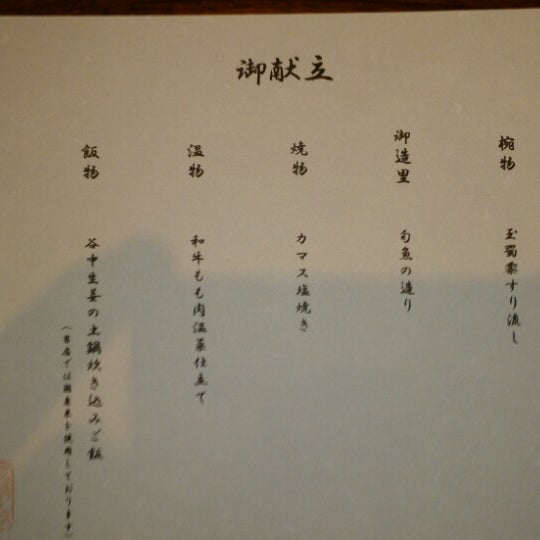 御献立
椀物
玉蜀黍すり流し
御造里
旬魚の造り
焼物
カマス塩焼き
温物
和牛もも肉温菜仕立て
飯物
谷中生姜の土鍋炊き込みご飯
(当店では国産米を使用しております)